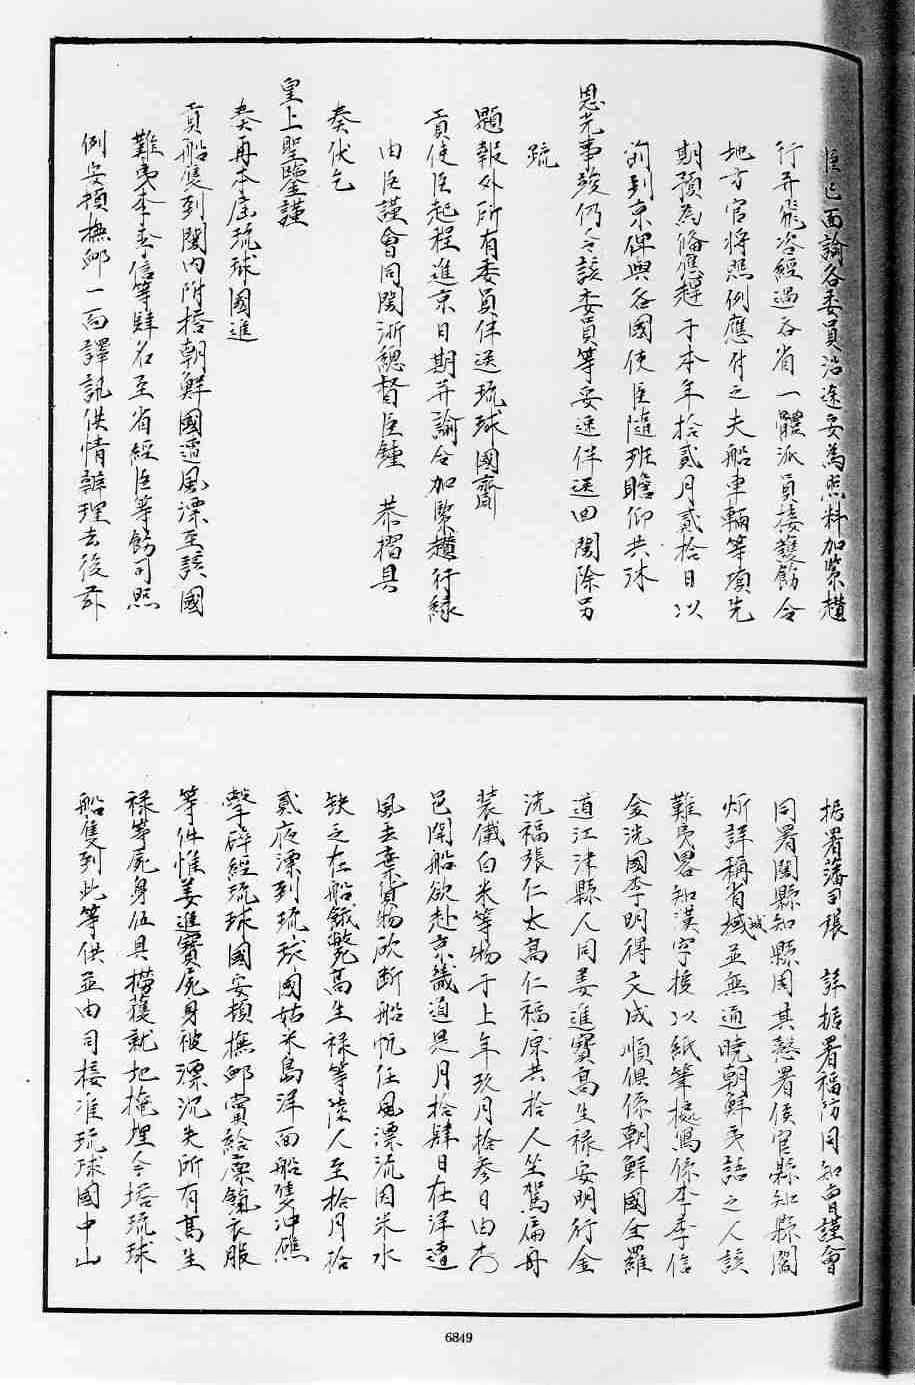 臣已面諭各委員沿途妥為照料加緊趲
行并飛咨經過各省一體派員接護飭令
地方官將照例應付之夫船車輛等項先
期預為備應趕于本年拾貳月貳拾日以
前到京俾與各國使臣隨班瞻仰共沐
恩光事竣仍令該委員等妥速伴送回閩除另
疏
題報外所有委員伴送琉球國齎
貢使臣起程進京日期并諭令加緊趲行緣
由臣謹會同閩浙總督臣鐘 恭摺具
奏伏乞
皇上聖鑒謹
奏再本屆琉球國進
貢船隻到閩內附搭朝鮮國遭風漂至該國
難夷李季信等肆名至省經臣等飭司照
例安頓撫卹一面譯訊供情辦理去後茲
据署藩司張 詳據署福防同知曾曰謹會
同署閩縣知縣周其慤署侯官縣知縣閻
炘詳稱省城並無通曉朝鮮夷語之人該
城
難夷畧知漢字授以紙筆據寫係李季信
金洗國李明得文成順俱係朝鮮國全羅
道江津縣人同姜進寶高生祿安明行金
洗福張仁太高仁福原共拾人坐駕扁舟
裝儎白米等物于上年玖月拾參日由本
邑開船欲赴京畿道是月拾肆日在洋遭
風丟棄貨物砍斷船帆任風漂流因米水
缺乏在船餓斃高生祿等陸人至拾月拾
貳夜漂到琉球國姑米島洋面船隻冲礁
擊碎經琉球國安頓撫卹賞給廩餼衣服
等件惟姜進寶屍身被漂沉失所有高生
祿等屍身伍具撈獲就地掩埋今搭琉球
船隻到此等供並由司接准琉球國中山
6849